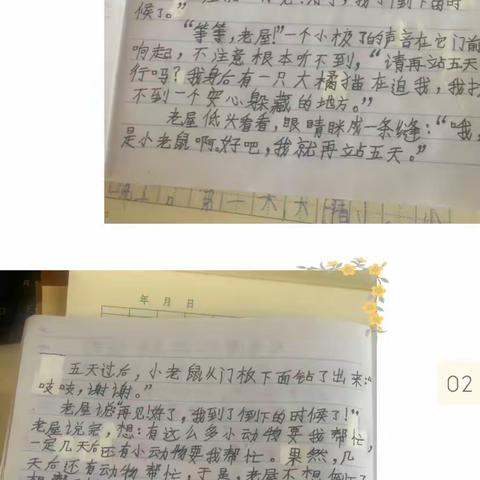 候了。”
“等等,老屋!”一个小极了的声音在它门前
响起,不注意根本听不到,“请再站五天
行吗?我身后有一只大橘猫在追我,我找
不到一个安心躲藏的地方。”
老屋低头看看,眼睛眯成一条缝:“哦,
是小老鼠啊。好吧,我就再站五天。”
年 月 日
02
五天过后,小老鼠从门板下面钻了出来:“
吱吱,谢谢。”
老屋说“再见!好了,我到了倒下的时候了!”
老屋说完,想:有这么多小动物要我帮忙,
一定几天后还有小动物要我帮忙。果然,几
天后还有动物帮忙,于是,老屋不想倒下了